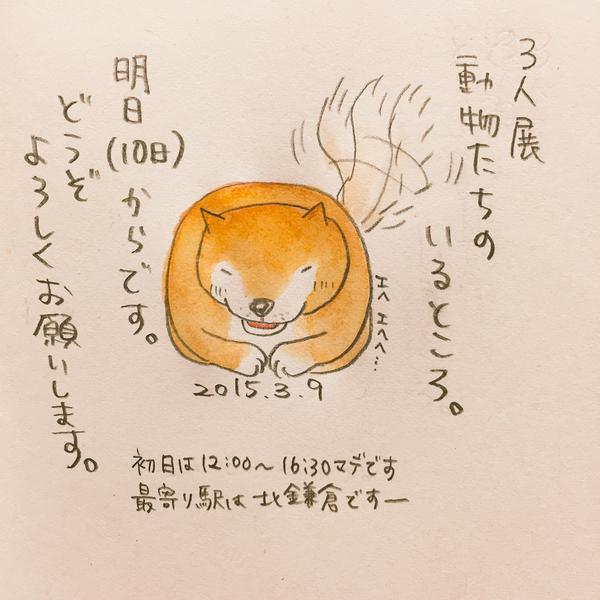 3人展
動物たちの
いるところ。
エヘエヘヘ…
明日(10日)からです。
どうぞ
よろしくお願いします。
2015.3.9
初日は12:00〜16:30マデです
最寄り駅は北鎌倉ですー